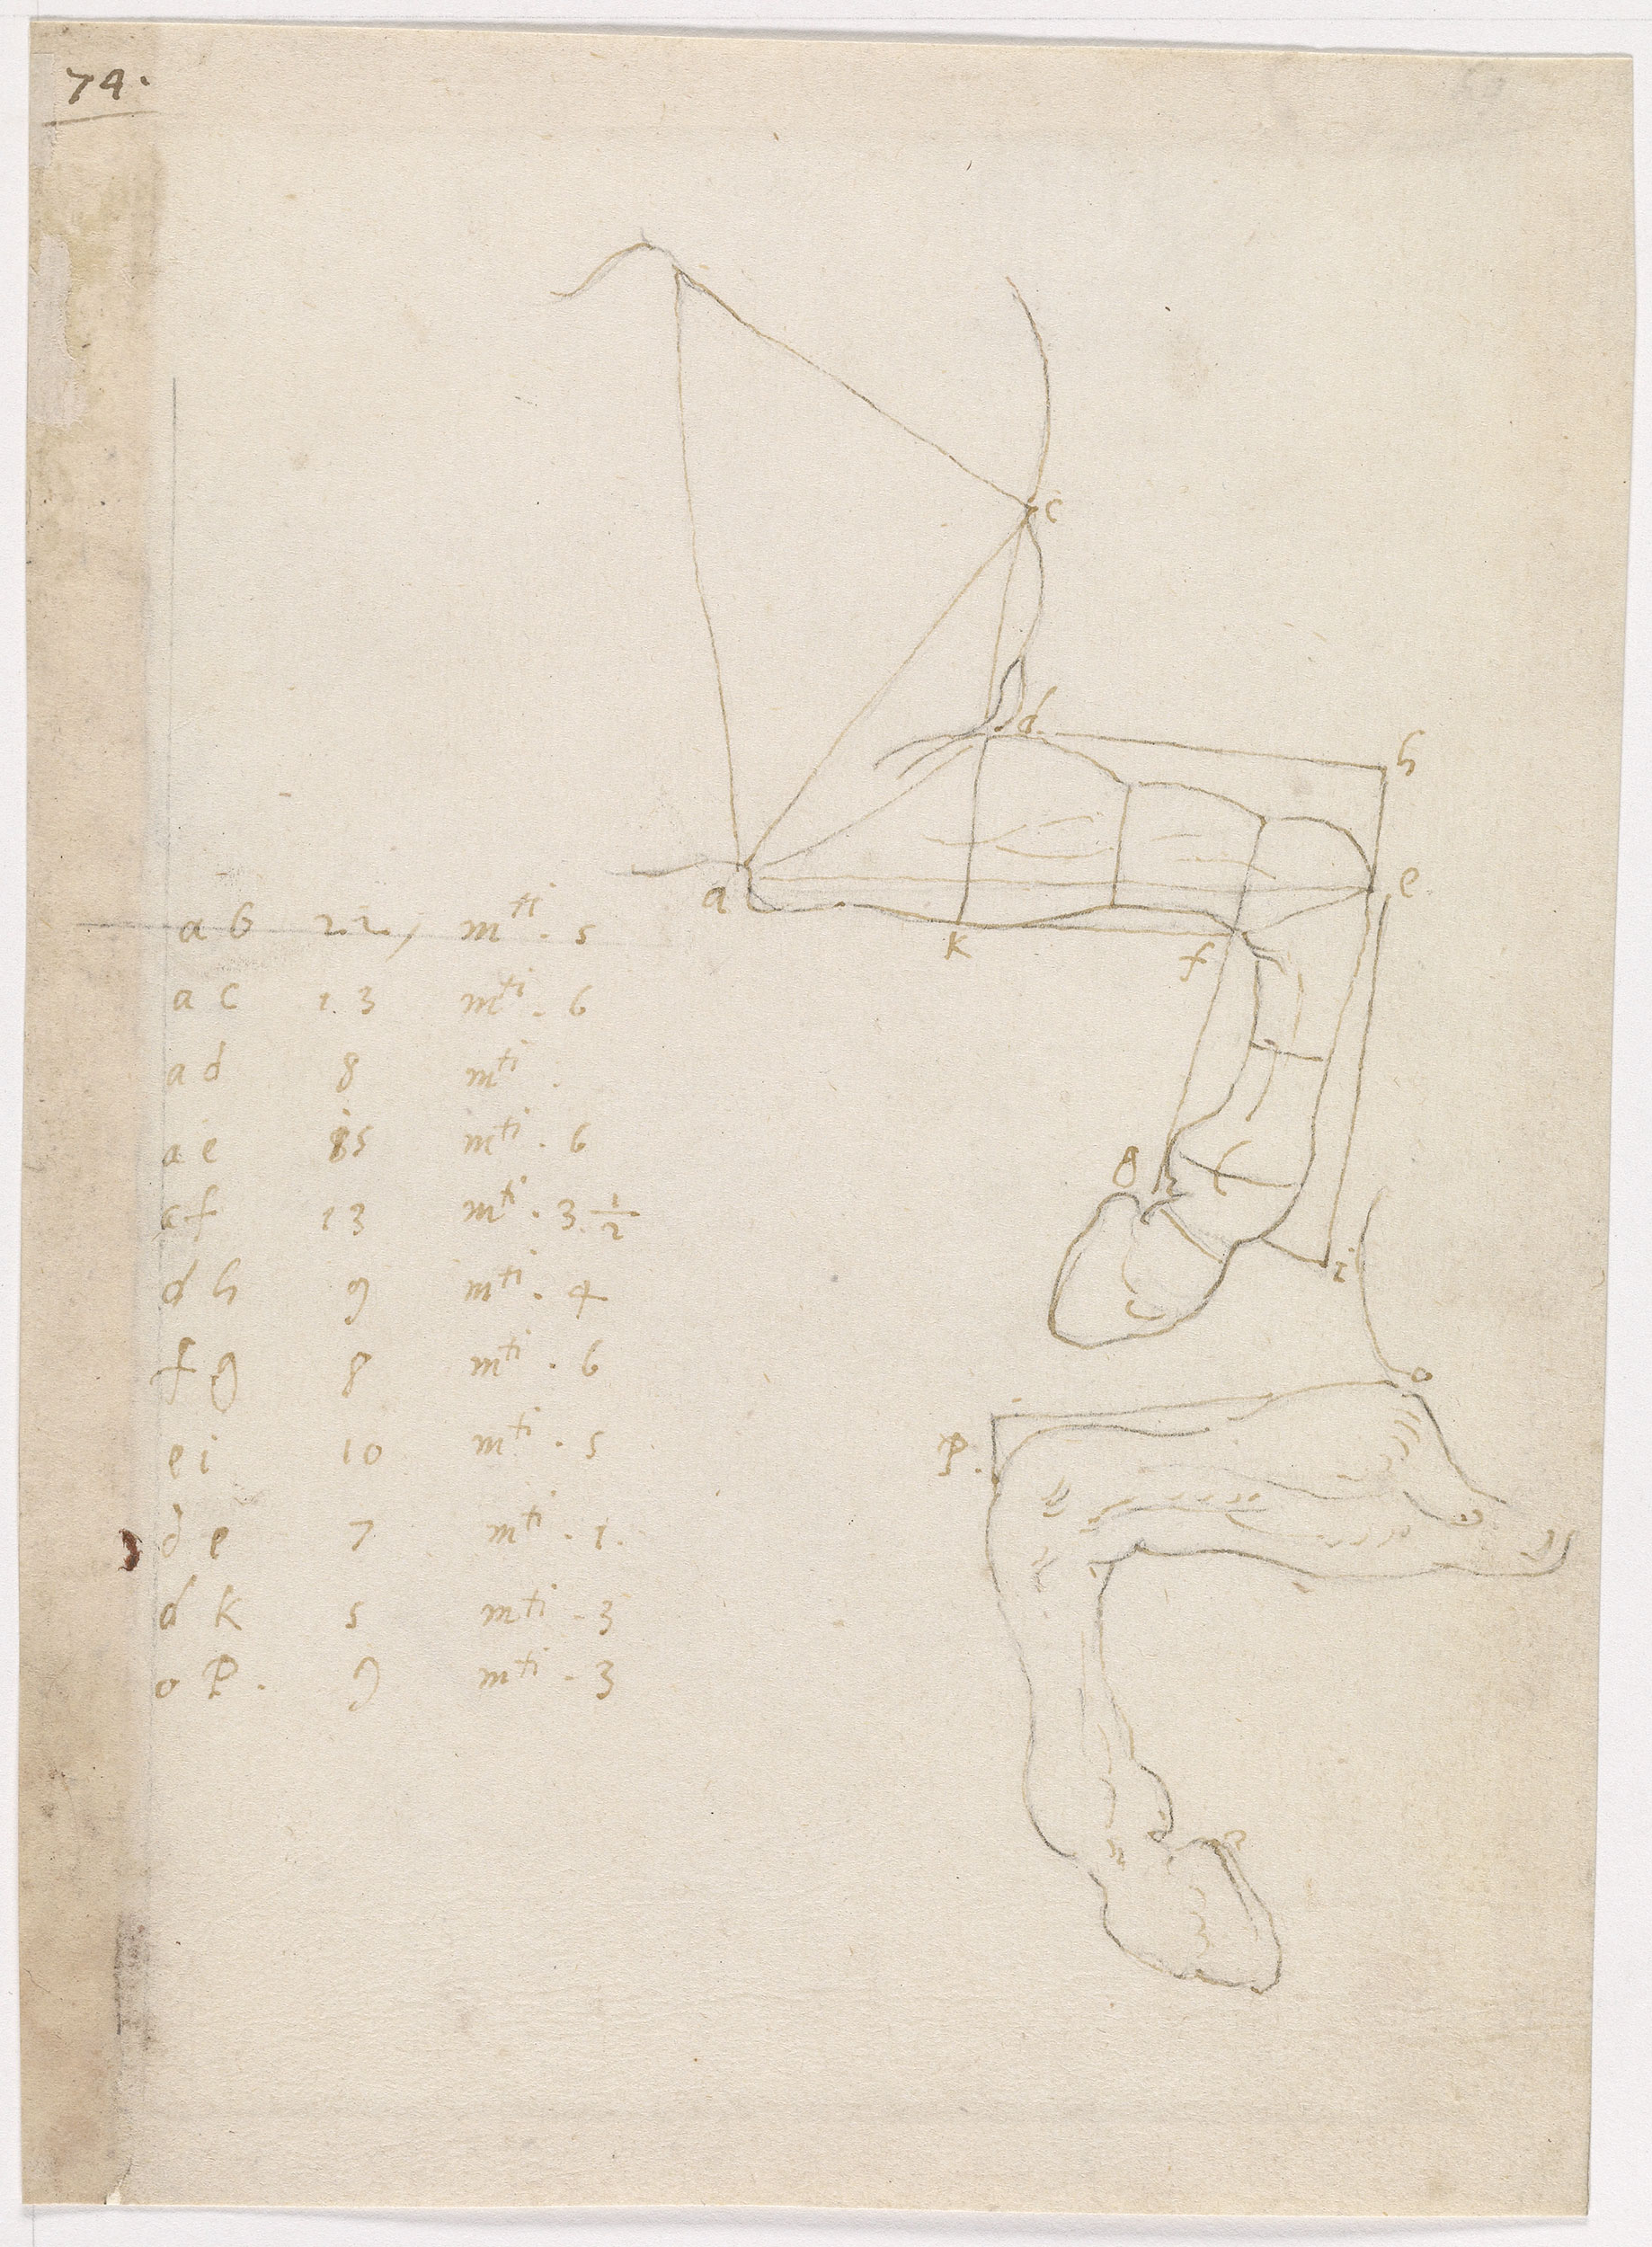 74.
c
d
h
a
e
k
f
g
i
o
P.
a b 22, m^ti. 5
a c 13 m^ti. 6
a d 8 m^ti.
a e 15 m^ti. 6
a f 13 m^ti. 3 1/2
d h 9 m^ti. 4
f g 8 m^ti. 6
e i 10 m^ti. 5
d e 7 m^ti. 1.
d k 5 m^ti. 3
o P. 9 m^ti. 3